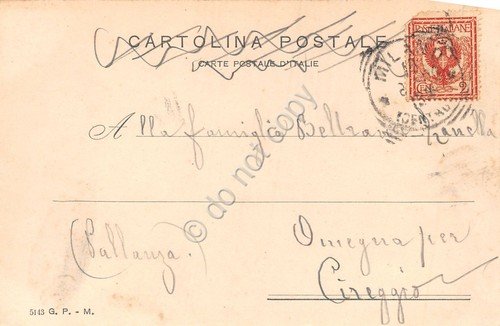 CARTOLINA POSTALE
CARTE POSTALE D'ITALIE
MILANO
2
A lla famiglia Beltrami Zanella
© do not copy
(Pallanza)
Omegna per
Cireggio
5143 G. P. - M.